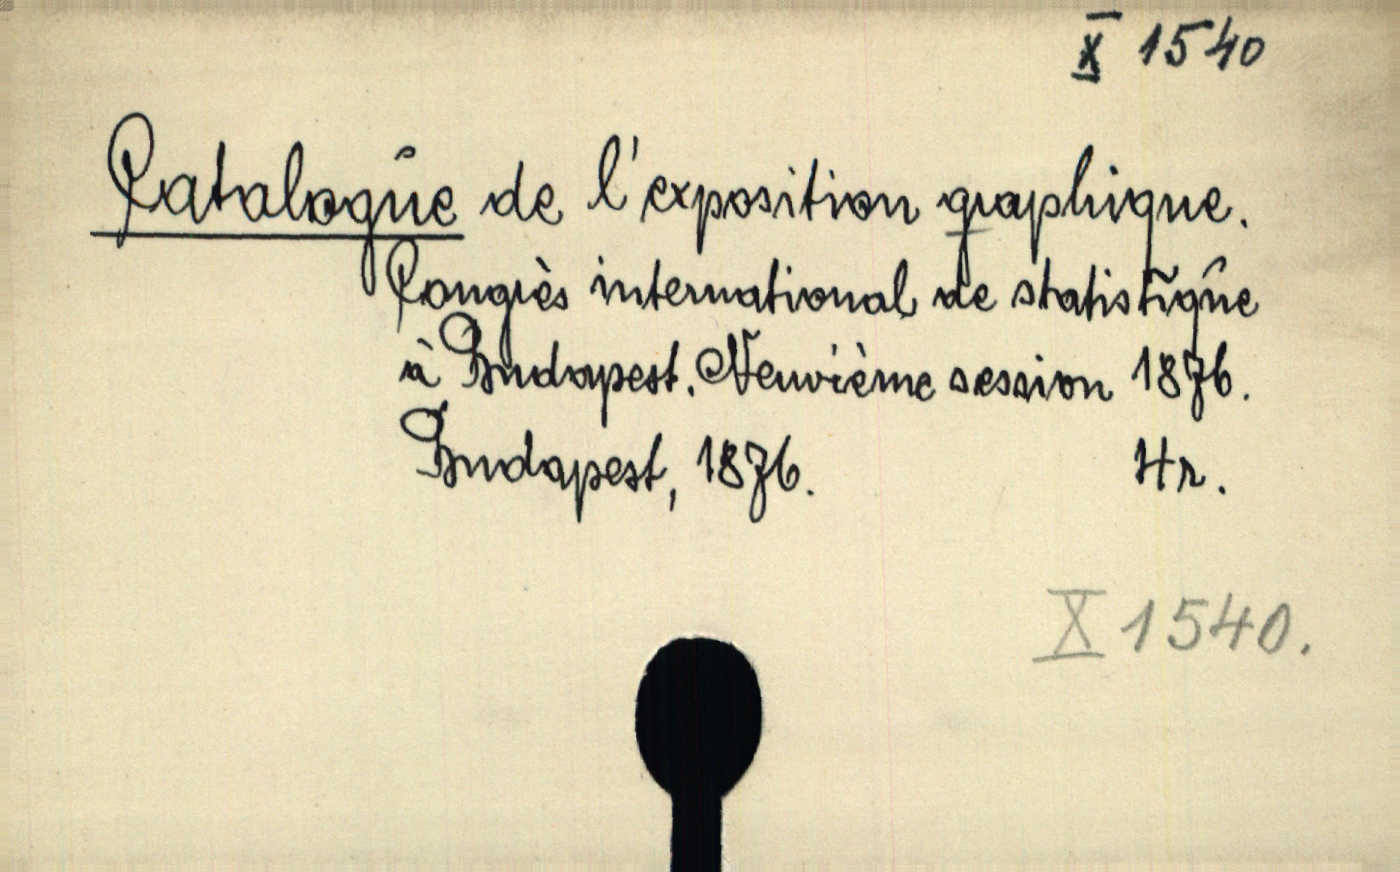 X 1540
Catalogue de l'exposition graphique.
Congrès international de statistique
à Budapest. Neuvième session 1876.
Budapest, 1876. Hr.
X 1540.